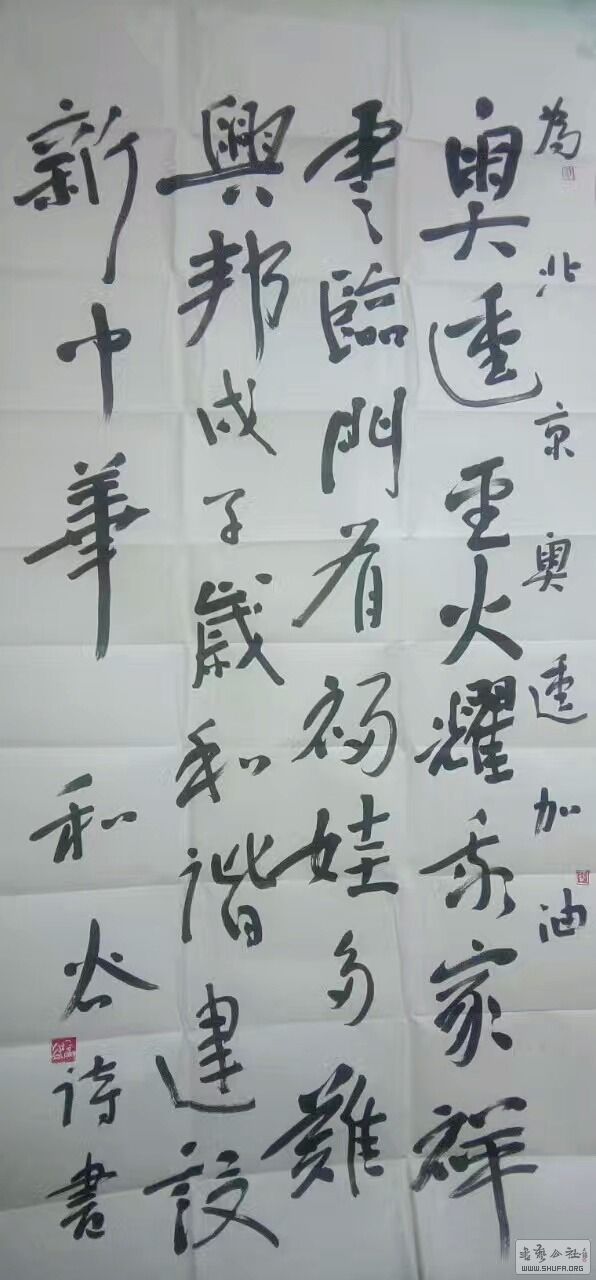 為北京奧運加油
奧運圣火耀我家祥
雲臨門有福娃多難
興邦戊子歲和諧建設
新中華
和 詩書
書藝公社
WWW.SHUFA.ORG